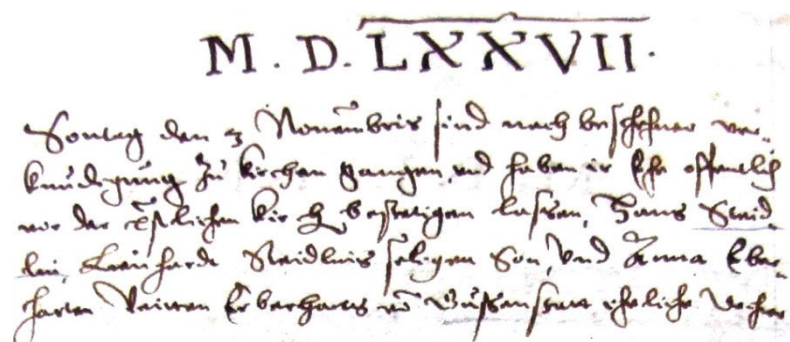 M. D. LXXVII.
Sontag den 3 Novembris sind nach beschehner ver-
kundigung zu kirchen gangen, und haben ir Ehe offentlich
vor der kirch bestetigen lassen, Hans Steid
lin, Leinhardt Steidlins seligen Son, und Anna Eber-
harten Eberharts von eheliche dochter